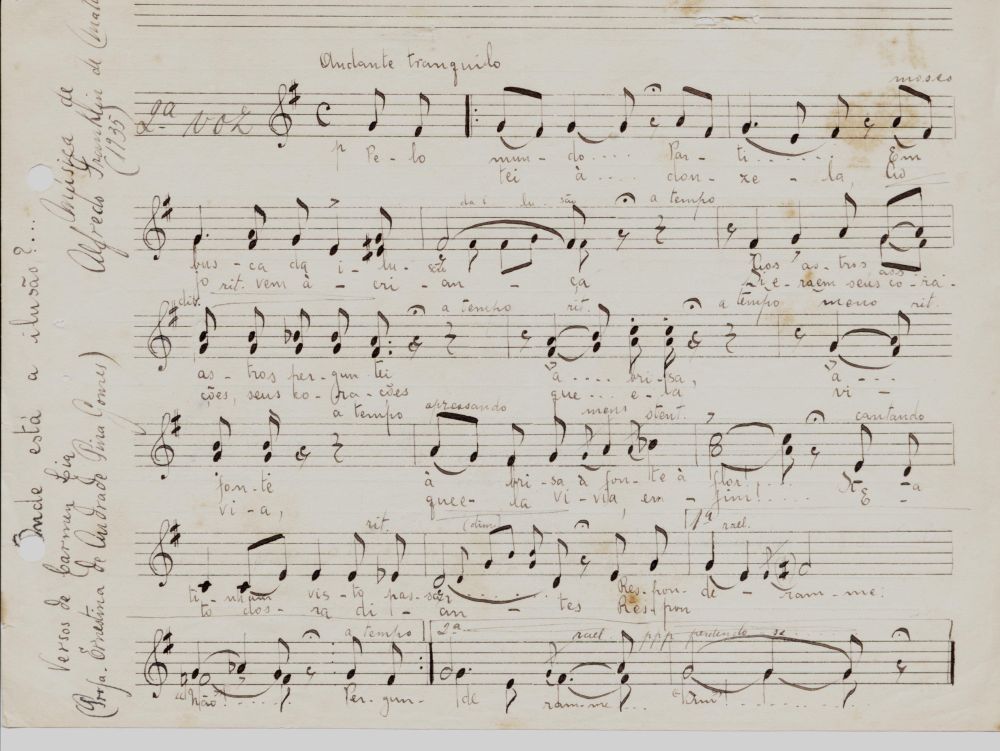 Onde está a ilusão?....
Versos de Carmen Cia
(Profa. Orientina de Andrade Pina Gomes)
Música de
Alfredo Franklin de
(1935)
Andante tranquilo
2ª voz
mosso
p Pe - lo mun - do.... Par - ti....... Em
tei à.... don - ze - la,
a tempo
bus - ca da i - lu -
rit. vem à - cri - an - ça
Aos as - tros
seus co - ra -
a tempo rit. a tempo meno rit.
as - tros per - gun - tei a.... bri - sa, à - ...
ções, seus co - ra - ções que... e - la vi -
a tempo apressando cantando
fon - te à bri - sa à fon - te à flor!....
vi - a, que e - la vi - via, em - fim!....
rit. (dim) 1ª rael.
ti - nham vis - to pas - sar Res - pon - de - ram - me:
to dos - ra di - an - tes Res - pon
a tempo 2ª rael. ppp perdendo se
"Não!"...... Per - gun - de ram-me...